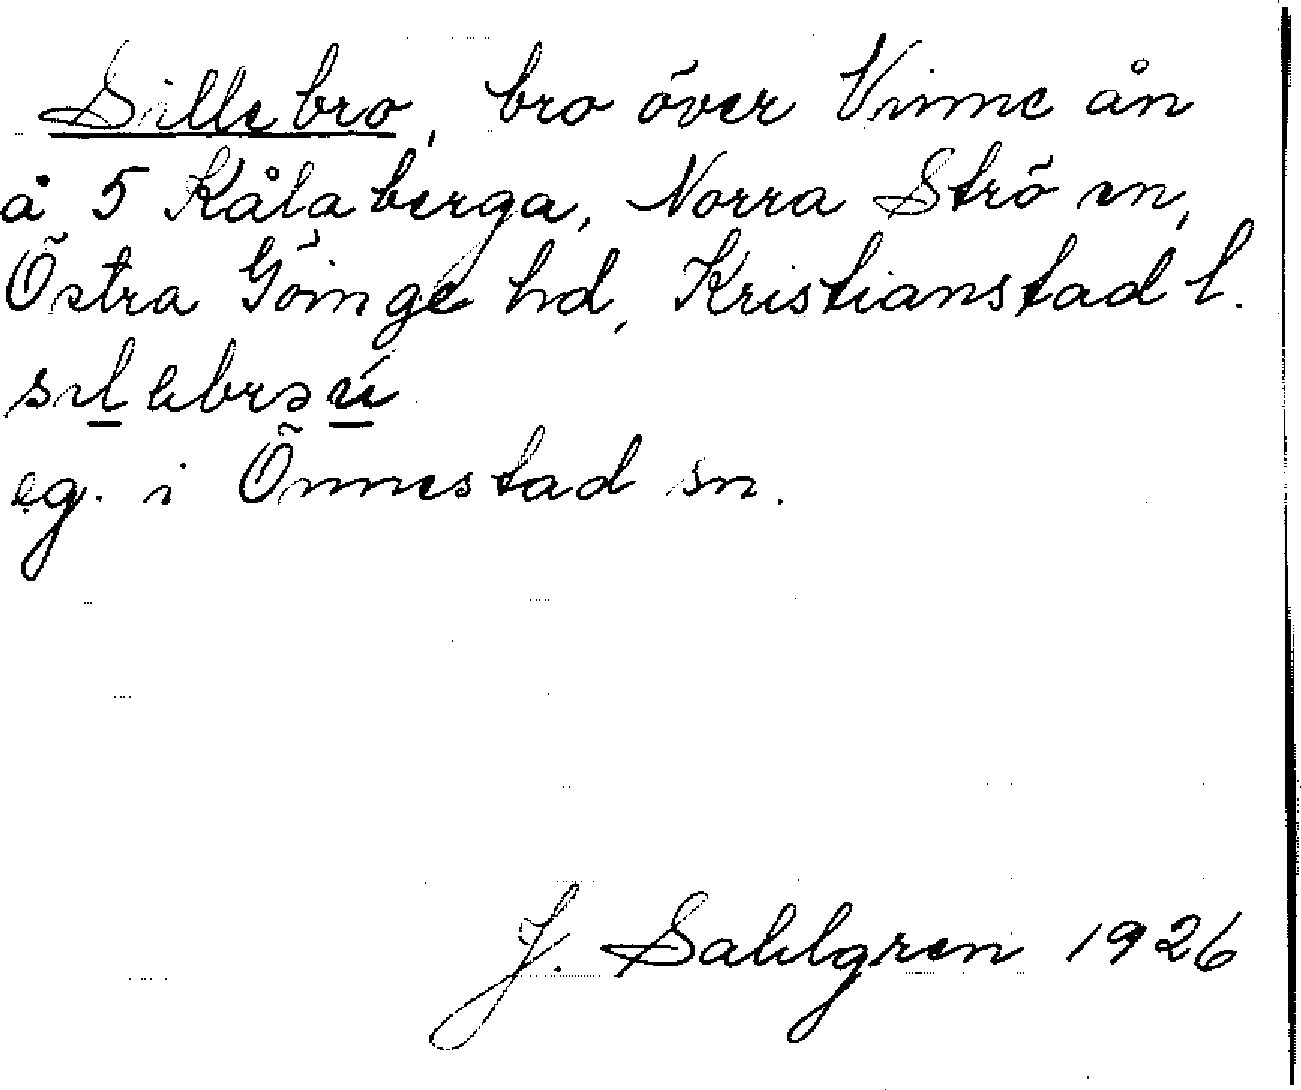 Sillebro, bro över Vinne ån
å 5 Kålaberga, Norra Strö sn,
Östra Göinge hd, Kristianstad l.
eg. i Önnestad sn.
J. Sahlgren 1926